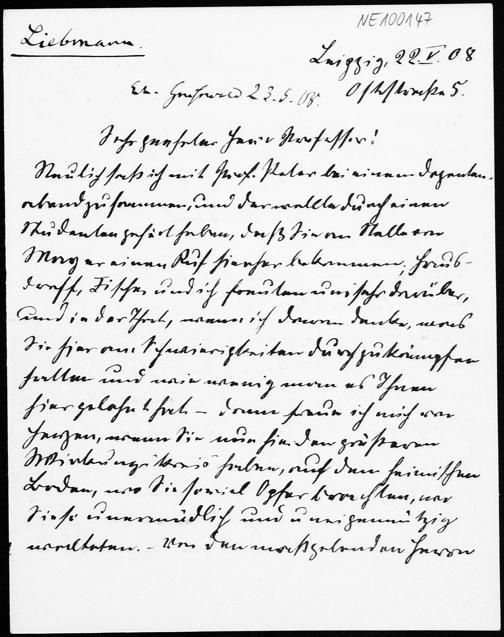 NE100147
Liebmann.
Leipzig, 22. V. 08
Ek. Greifswald 23.5.08. Oststraße 5.
Sehr geehrter Herr Professor!
Neulich saß ich mit Prof. Peter bei einem Dozenten-
abend zusammen, und der wollte durch einen
Studenten gehört haben, daß Sie an Stelle von
Mayer einen Ruf hierher bekommen; Haus-
dorff, Fischer und ich freuten uns sehr darüber,
und in der That, wenn ich daran denke, was
Sie hier an Schwierigkeiten durchzukämpfen
hatten und wie wenig man es Ihnen
hier gelohnt hat – dann freue ich mich von
Herzen, wenn Sie nun hier den größeren
Wirkungskreis haben, auf dem heimischen
Boden, wo Sie soviel Opfer brachten, wo
Sie so unermüdlich und uneigennützig
– Von den maßgebenden Herren